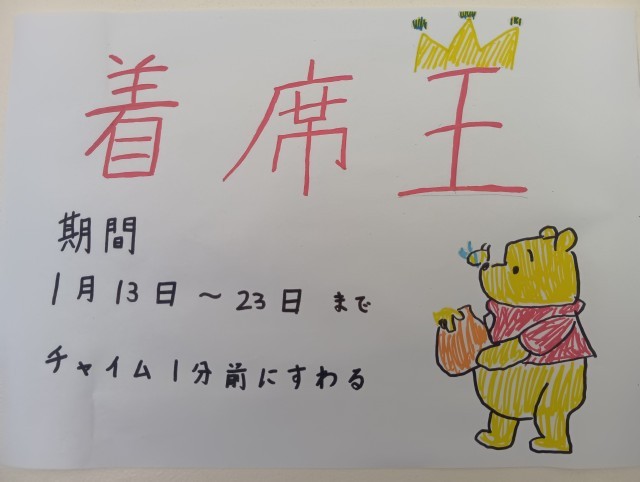 着席王
期間
1月13日～23日まで
チャイム1分前にすわる